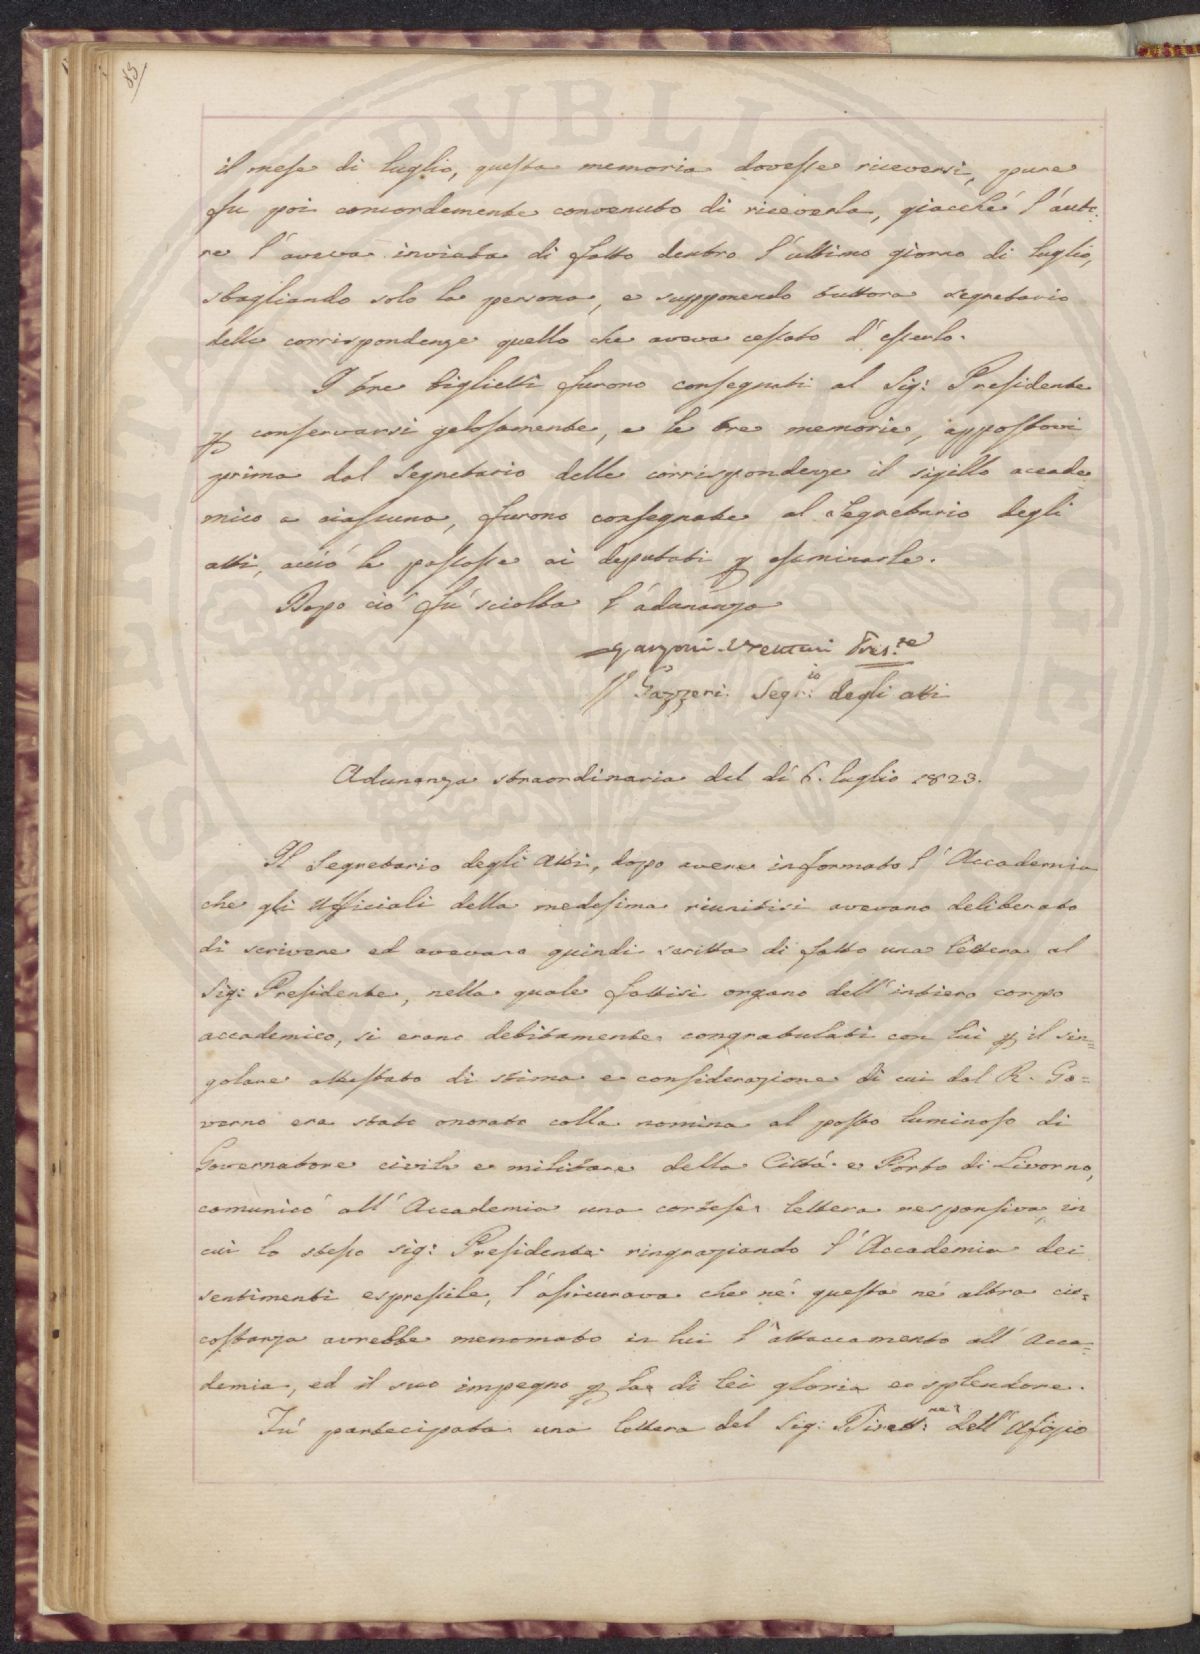 83
il mese di luglio, questa memoria dovesse riceversi, pure
fu poi concordemente convenuto di riceverla, giacchè l'auto:
re l'aveva inviata di fatto dentro l'ultimo giorno di luglio,
sbagliando solo la persona, e supponendo tuttora segretario
delle corrispondenze quello che aveva cessato d'esserlo.
I tre biglietti furono consegnati al Sig: Presidente
p conservarsi gelosamente, e le tre memorie, appostovi
prima dal Segretario delle corrispondenze il sigillo accade
mico a ciascuna, furono consegnate al Segretario degli
atti, acciò le passasse ai deputati p esaminarle.
Dopo ciò fù sciolta l'adunanza
Garzoni Venturi Pres.te
G Gazzeri Segr:io degli atti
Adunanza straordinaria del dì 6. luglio 1823.
Il Segretario degli Atti, dopo avere informato l'Accademia
che gli Ufficiali della medesima riunitisi avevano deliberato
di scrivere ed avevano quindi scritta di fatto una lettera al
Sig: Presidente, nella quale fattisi organo dell'intiero corpo
accademico, si erano debitamente congratulati con lui p il sin=
golare attestato di stima e considerazione di cui dal R. Go=
verno era stato onorato colla nomina al posto luminoso di
Governatore civile e militare della Città e Porto di Livorno,
comunicò all'Accademia una cortese lettera responsiva, in
cui lo stesso sig: Presidente ringraziando l'Accademia dei
sentimenti espressile, l'assicurava che nè questa nè altra cir=
costanza avrebbe menomato in lui l'attaccamento all'Acca=
demia, ed il suo impegno p la di lei gloria e splendore.
Fù partecipata una lettera del Sig: Dirett:re dell'Ufizio